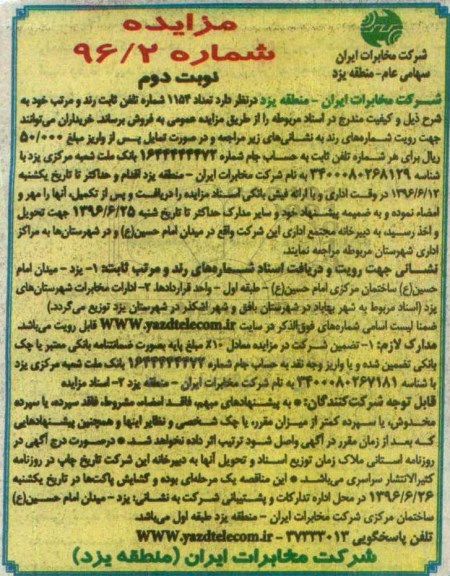 مزایده
شماره ۹۶/۲
نوبت دوم
شرکت مخابرات ایران
سهامی عام - منطقه یزد
شرکت مخابرات ایران - منطقه یزد درنظر دارد تعداد ۱۱۵۴ شماره تلفن ثابت رند و مرتب خود به
شرح ذیل و کیفیت مندرج در اسناد مربوطه را از طریق مزایده عمومی به فروش برساند. خریداران می‌توانند
جهت رویت شماره‌های رند به نشانی‌های زیر مراجعه و در صورت تمایل پس از واریز مبلغ ۵۰/۰۰۰
ریال برای هر شماره تلفن ثابت به حساب جام شماره ۱۶۴۴۴۴۴۴۷۲ بانک ملت شعبه مرکزی یزد با
شناسه ۳۴۰۰۰۸۰۲۶۸۱۲۹ به نام شرکت مخابرات ایران - منطقه یزد اقدام و حداکثر تا تاریخ یکشنبه
۱۳۹۶/۶/۱۲ در وقت اداری و با ارائه فیش بانکی اسناد مزایده را دریافت و پس از تکمیل، آنها را مهر و
امضاء نموده و به ضمیمه پیشنهاد خود و سایر مدارک حداکثر تا تاریخ شنبه ۱۳۹۶/۶/۲۵ جهت تحویل
و اخذ رسید، به دبیرخانه مجتمع اداری این شرکت واقع در میدان امام حسین(ع) و در شهرستان‌ها به مراکز
اداری شهرستان مربوطه مراجعه نمایند.
نشانی جهت رویت و دریافت اسناد شماره‌های رند و مرتب ثابت: ۱- یزد - میدان امام
حسین(ع) ساختمان مرکزی امام حسین(ع) - طبقه اول - واحد قراردادها. ۲- ادارات مخابرات شهرستان‌های
یزد (اسناد مربوط به شهر بهاباد در شهرستان بافق و شهر اشکذر در شهرستان یزد توزیع می‌گردد.)
ضمنا لیست اسامی شماره‌های فوق‌الذکر در سایت WWW.yazdtelecom.ir قابل رویت می‌باشد.
مدارک لازم: ۱- تضمین شرکت در مزایده معادل ۱۰٪ مبلغ پایه بصورت ضمانتنامه بانکی معتبر یا چک
بانکی تضمین شده و یا واریز وجه نقد به حساب جام شماره ۱۶۴۴۴۴۴۴۷۲ بانک ملت شعبه مرکزی یزد
با شناسه ۳۴۰۰۰۸۰۲۶۷۱۸۱ به نام شرکت مخابرات ایران - منطقه یزد ۲- اسناد مزایده
قابل توجه شرکت‌کنندگان: * به پیشنهادهای مبهم، فاقد امضاء، مشروط، فاقد سپرده، یا سپرده
مخدوش، یا سپرده کمتر از میزان مقرر، یا چک شخصی و نظایر اینها و همچنین پیشنهادهایی
که بعد از زمان مقرر در آگهی واصل شود ترتیب اثر داده نخواهد شد. * درصورت درج آگهی در
روزنامه استانی ملاک زمان توزیع اسناد و تحویل آنها به دبیرخانه این شرکت تاریخ چاپ در روزنامه
کثیرالانتشار سراسری می‌باشد. * این مناقصه یک مرحله‌ای بوده و گشایش پاکت‌ها در تاریخ یکشنبه
۱۳۹۶/۶/۲۶ در محل اداره تدارکات و پشتیبانی شرکت به نشانی: یزد - میدان امام حسین(ع)
ساختمان مرکزی شرکت مخابرات ایران - منطقه یزد طبقه اول می‌باشد.
تلفن پاسخگویی ۳۷۲۳۳۰۱۳ - WWW.yazdtelecom.ir
شرکت مخابرات ایران (منطقه یزد)